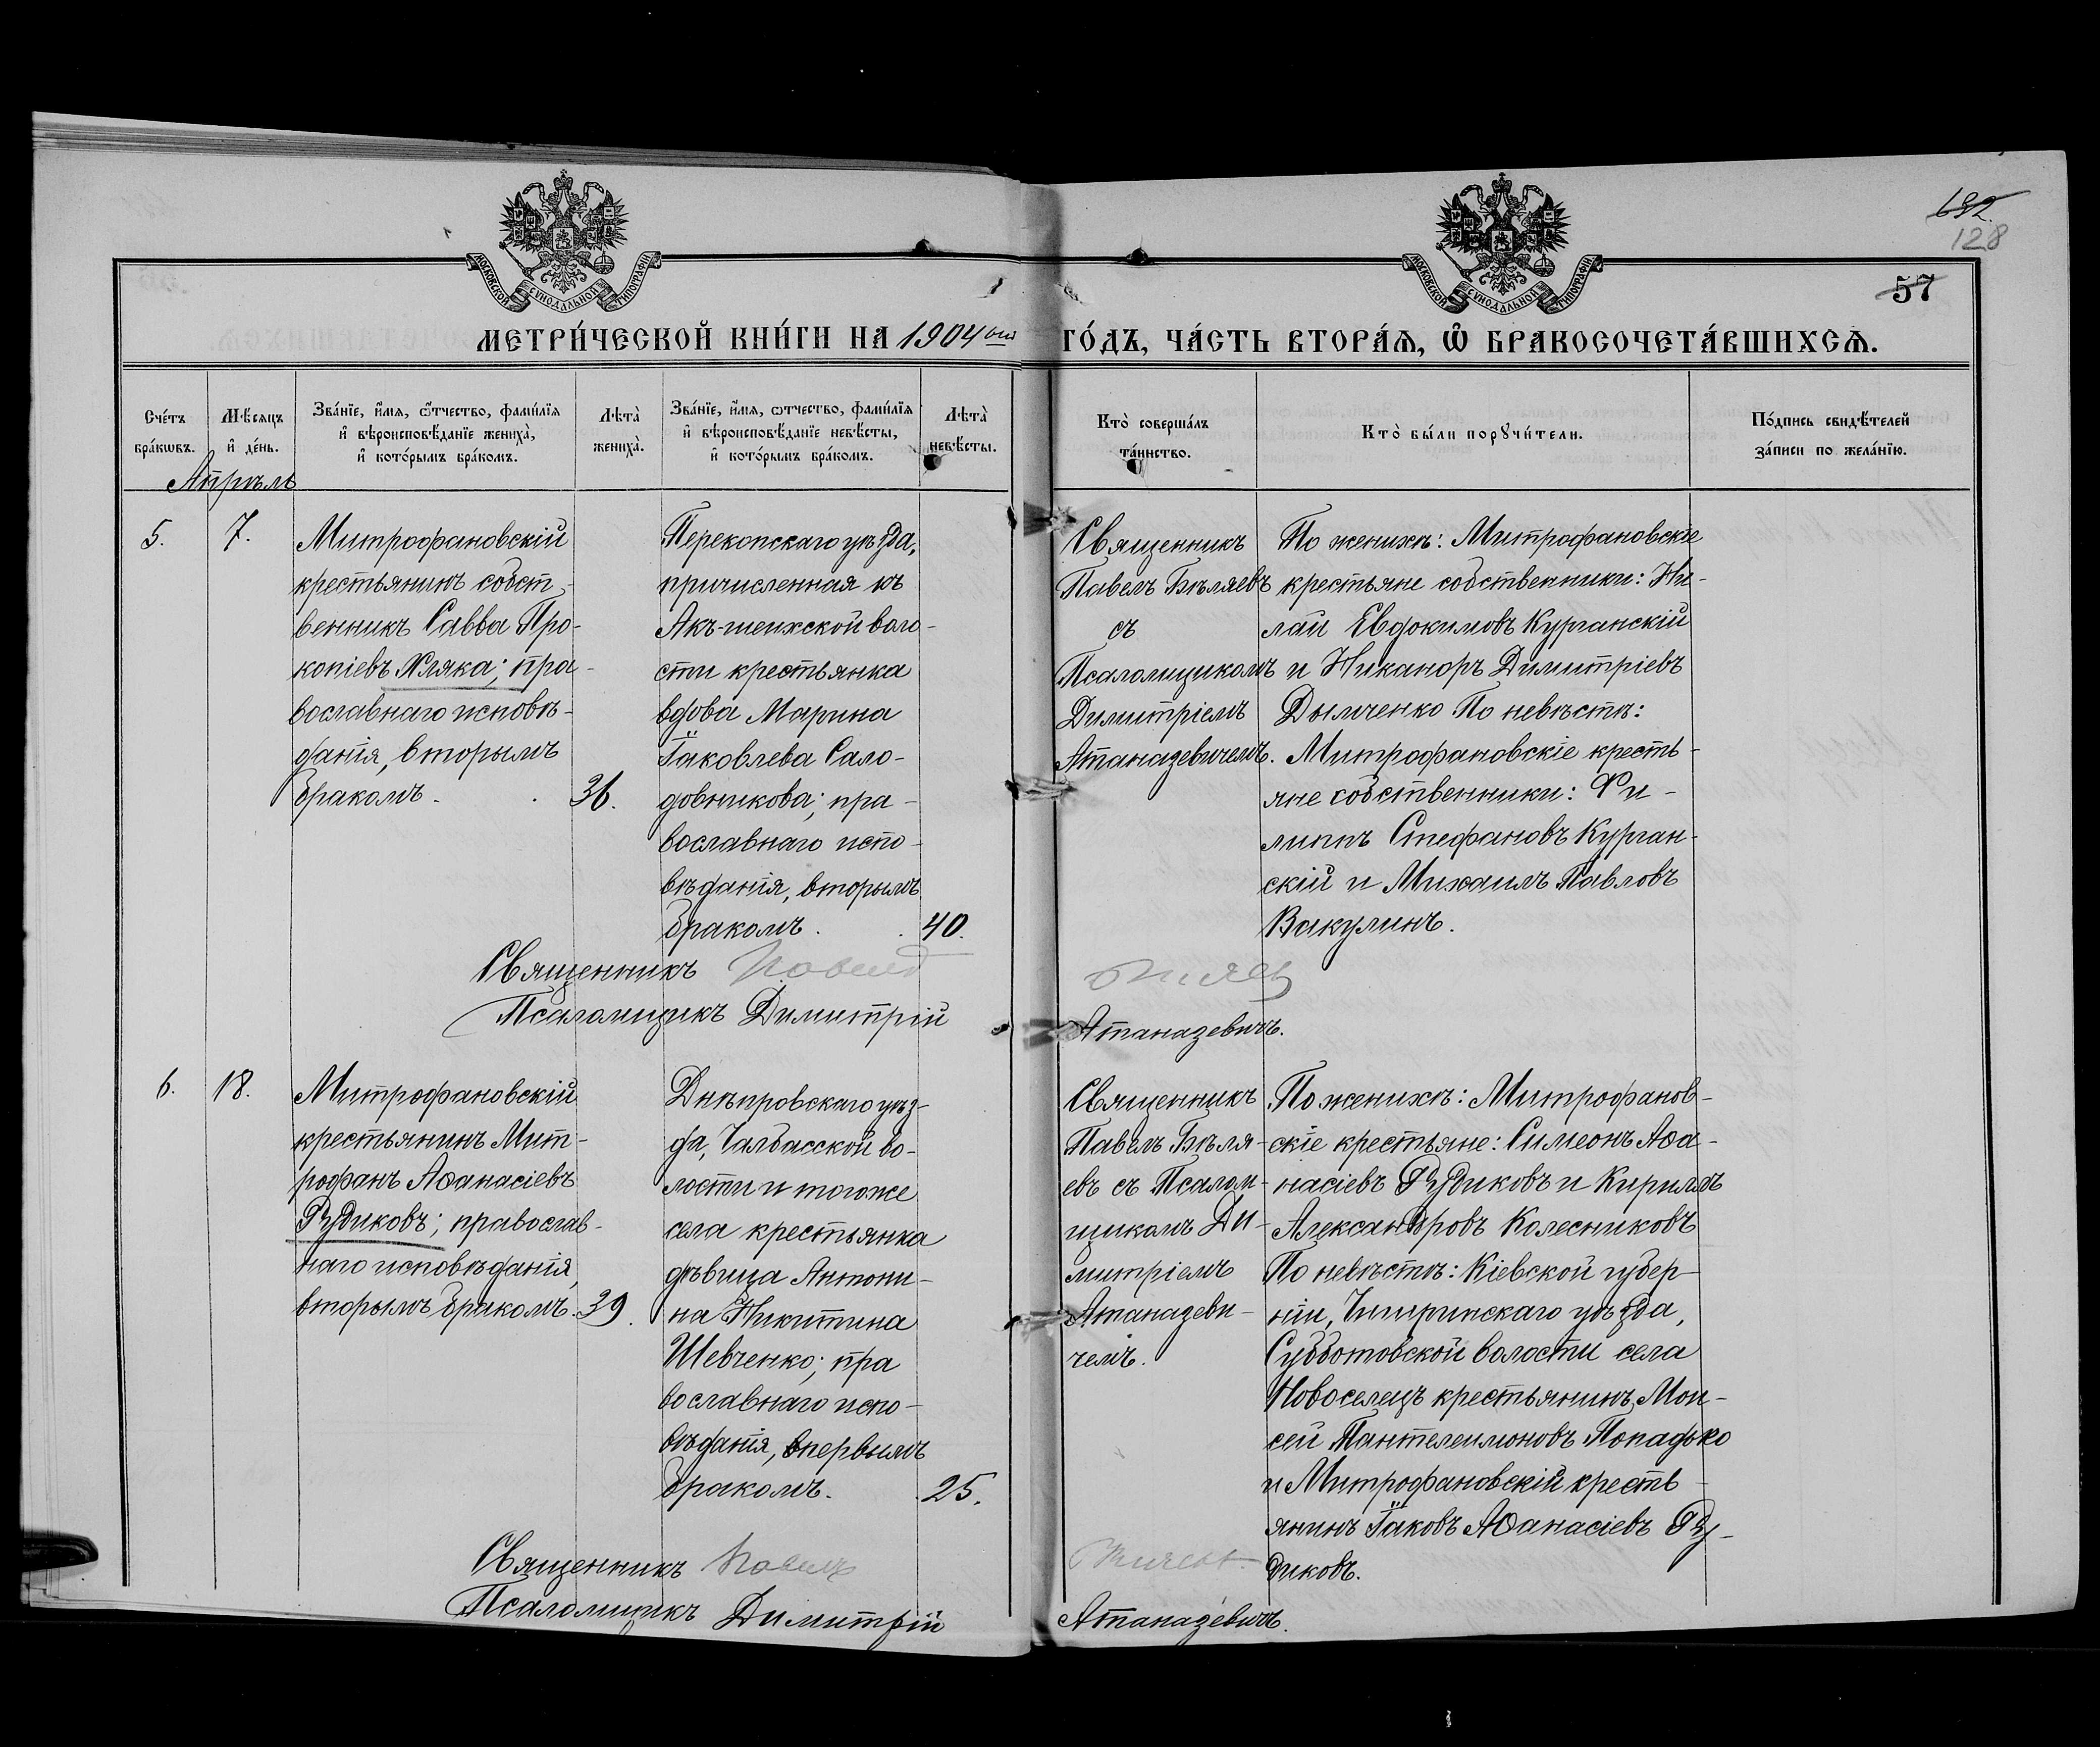 692.
128
57
МОСКОВСКОЙ СѴНОДАЛЬНОЙ ТИПОГРАФІИ
МОСКОВСКОЙ СѴНОДАЛЬНОЙ ТИПОГРАФІИ
МЕТРИ́ЧЕСКОЙ КНИ́ГИ НА 1904 ый ГО́ДЪ, ЧА́СТЬ ВТОРА́Я, Ѡ҆ БРАКОСОЧЕТА́ВШИХСѦ.
Сче́тъ бра́кѡвъ.
Мѣ́сяцъ и҆ де́нь.
Зва́нїе, и҆́мя, ѻ҆́тчество, фами́лїя и҆ вѣроисповѣ́данїе жениха̀, и҆ кото́рымъ бра́комъ.
Лѣта̀ жениха̀.
Зва́нїе, и҆́мя, ѻ҆́тчество, фами́лїя и҆ вѣроисповѣ́данїе невѣ́сты, и҆ кото́рымъ бра́комъ.
Лѣта̀ невѣ́сты.
Кто̀ соверша́лъ та́инство.
Кто̀ бы́ли порꙋчи́тели.
По́дпись свидѣ́телей за́писи по жела́нїю.
Апрѣль
5.
7.
Митрофановскій
крестьянинъ собст-
венникъ Савва Про-
копіевъ Хляка; пра-
вославнаго исповѣ-
данія, вторымъ
бракомъ.
36.
Перекопскаго уѣзда,
причисленная къ
Акъ-шеихской воло-
сти крестьянка
вдова Марина
Іаковлева Сало-
довникова; пра-
вославнаго испо-
вѣданія, вторымъ
бракомъ.
40.
Священникъ
Павелъ Бѣляевъ
съ
Псаломщикомъ
Димитріемъ
Атаназевичемъ.
По женихѣ: Митрофановскіе
крестьяне собственники: Ни-
лай Евдокимовъ Курганскій
и Никаноръ Димитріевъ
Дымченко По невѣстѣ:
Митрофановскіе кресть-
яне собственники: Фи-
липпъ Стефановъ Курган-
скій и Михаилъ Павловъ
Вакулинъ.
Священникъ Павелъ Бѣляевъ
Псаломщикъ Димитрій Атаназевичъ.
6.
18.
Митрофановскій
крестьянинъ Мит-
рофанъ Аѳанасіевъ
Рудиковъ; православ-
наго исповѣданія,
вторымъ бракомъ.
39.
Днѣпровскаго уѣз-
да, Чалбасской во-
лости и тогоже
села крестьянка
дѣвица Антони-
на Никитина
Шевченко; пра
вославнаго испо-
вѣданія, впервымъ
бракомъ.
25.
Священникъ
Павелъ Бѣля-
евъ съ Псалом-
щикомъ Ди-
митріемъ
Атаназеви-
чемъ.
По женихѣ: Митрофанов-
скіе крестьяне: Симеонъ Аѳа-
насіевъ Рудиковъ и Кириллъ
Александровъ Колесниковъ
По невѣстѣ: Кіевской губер-
ніи, Чигиринскаго уѣзда,
Субботовской волости села
Новоселецъ крестьянинъ Мои-
сей Пантелеимоновъ Попадько
и Митрофановскій кресть-
янинъ Іаковъ Аѳанасіевъ Ру-
диковъ.
Священникъ Павелъ Бѣляевъ
Псаломщикъ Димитрій Атаназевичъ.